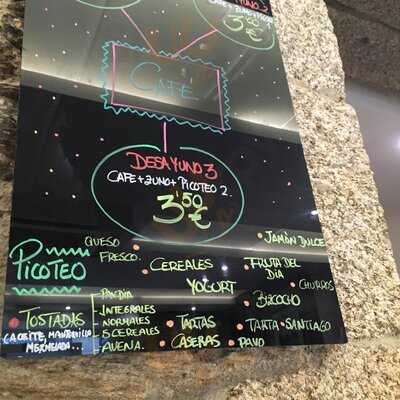 DESAYUNO 2
3'20€
CAFE
DESAYUNO 3
CAFE + ZUMO + PICOTEO 2
3'50€
PICOTEO
QUESO FRESCO.
CEREALES
YOGURT
JAMÓN DULCE
FRUTA DEL DIA
CHURROS
BIZCOCHO
TOSTADAS
MERMELADA...
PAN DIA
INTEGRALES
NORMALES
5 CEREALES
AVENA.
TARTAS CASERAS
TARTA SANTIAGO
PAVO